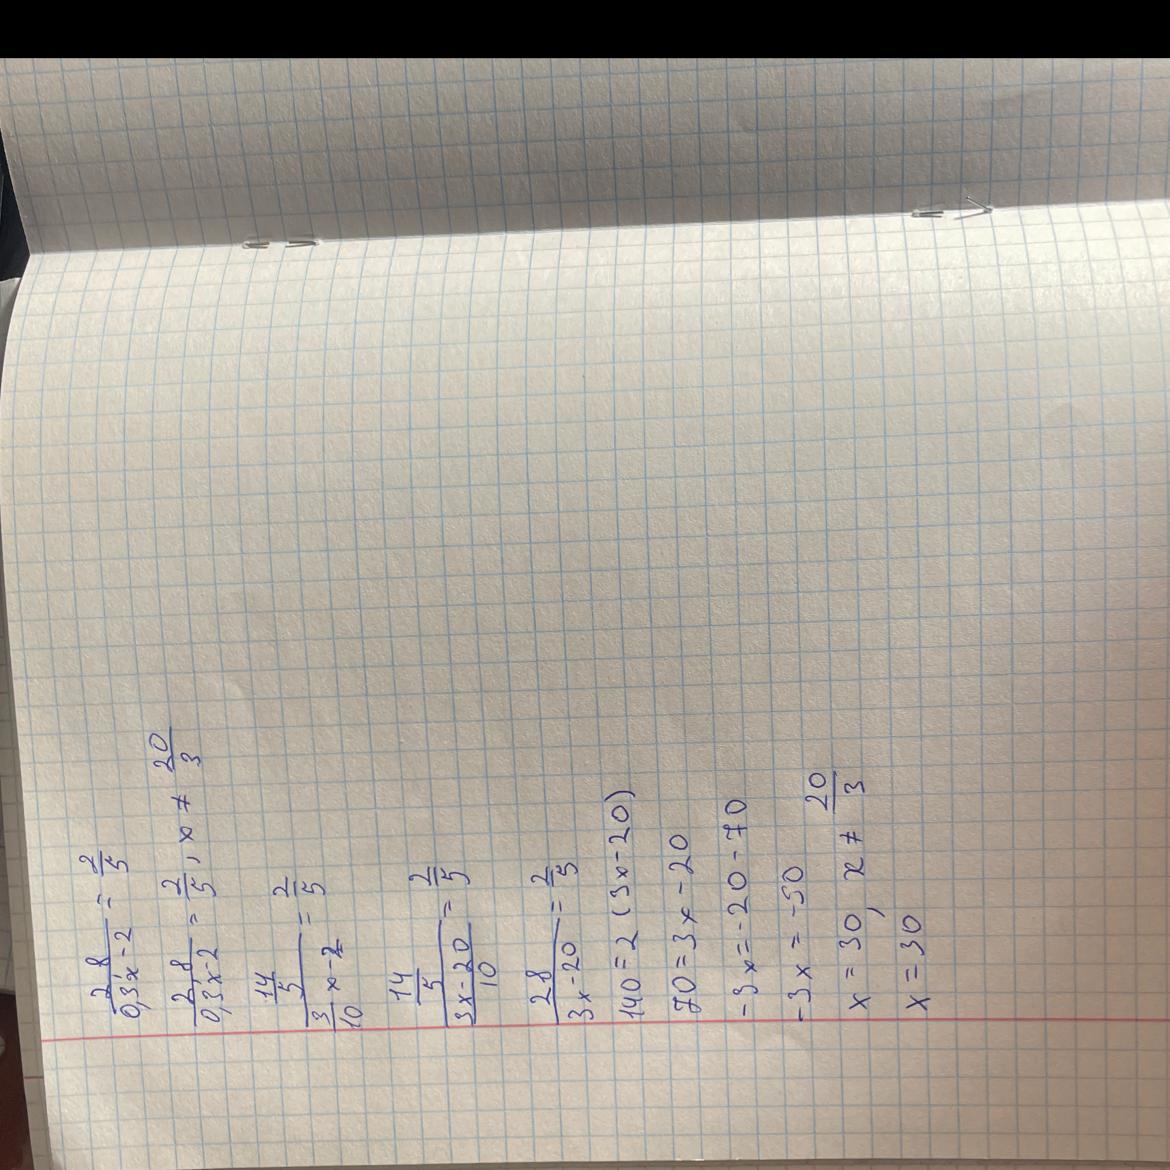 2,8/(0,3x-2) = 2/5
2,8/(0,3x-2) = 2/5, x ≠ 20/3
(14/5)/(3/10 x-2) = 2/5
(14/5)/((3x-20)/10) = 2/5
28/(3x-20) = 2/5
140=2(3x-20)
70=3x-20
-3x=-20-70
-3x=-90
x=30, x ≠ 20/3
x=30